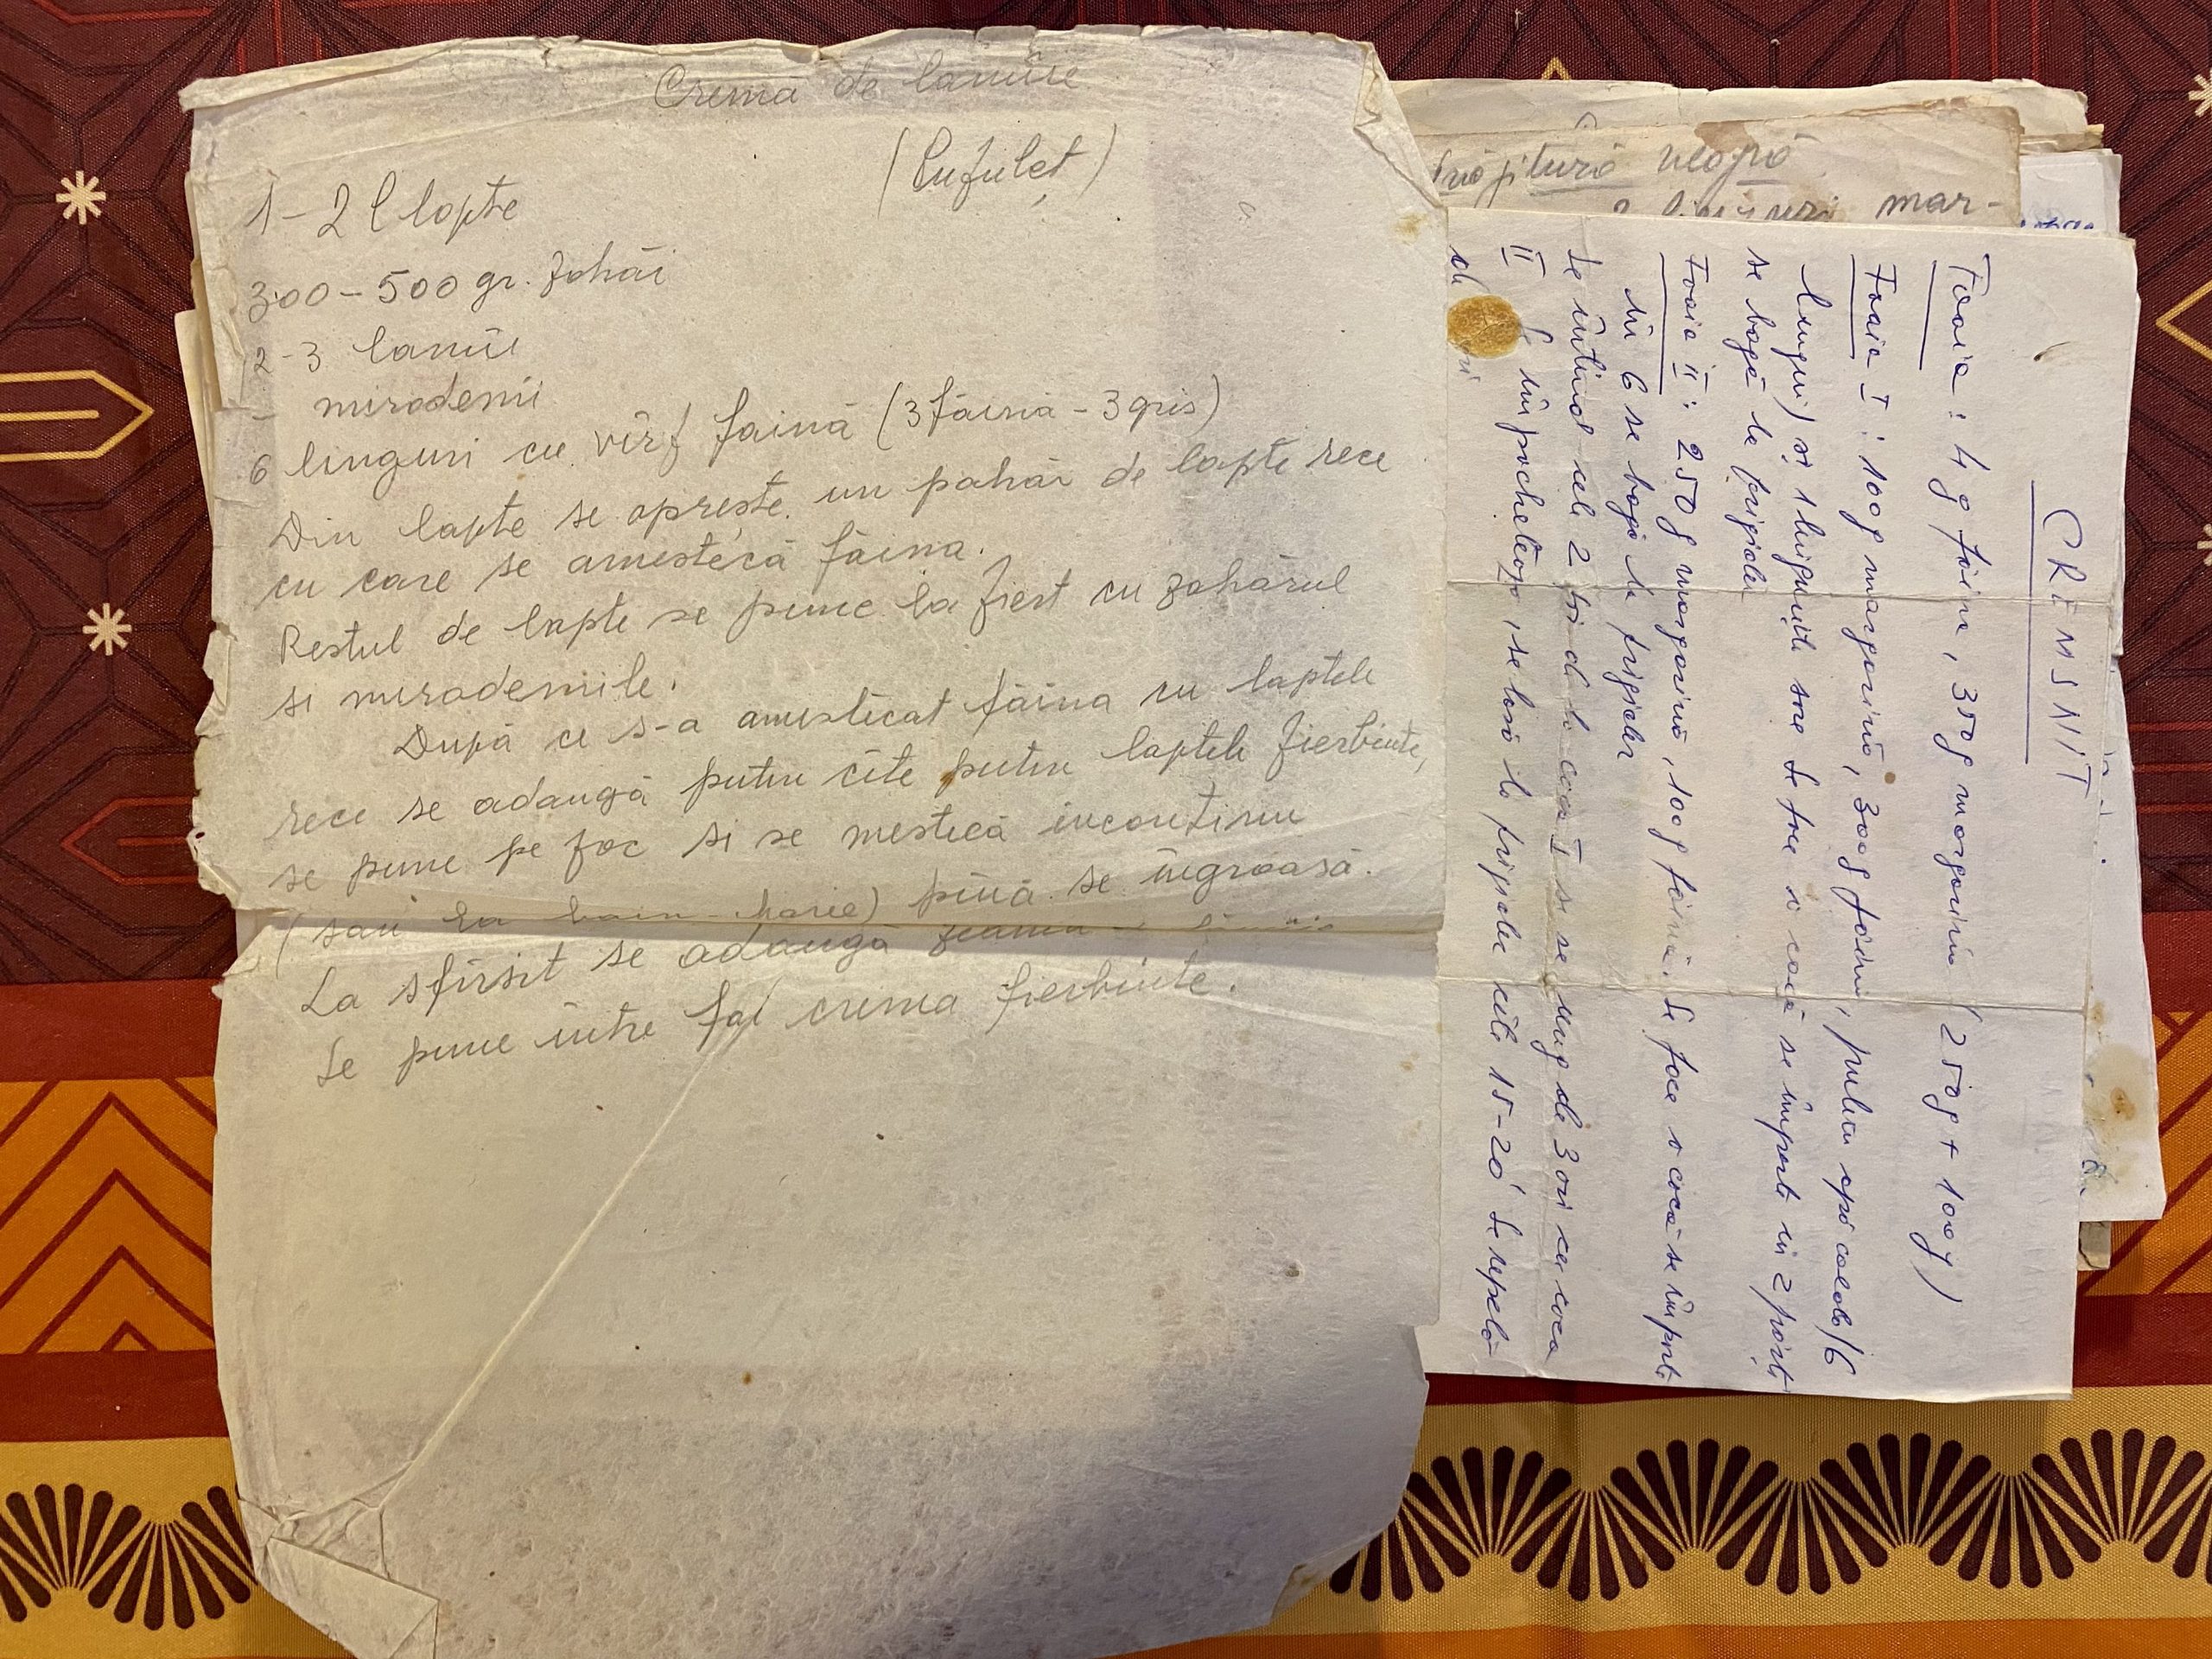 Cremă de lamîie
(Pufuleț)
1-2 l lapte
300-500 gr. zahăr
2-3 lamîi
- mirodenii
6 linguri cu vîrf făină (3 făină - 3 gris)
Din lapte se oprește un pahar de lapte rece
cu care se amestecă făina.
Restul de lapte se pune la fiert cu zahărul
si mirodeniile.
După ce s-a amesticat făina cu laptele
rece se adaugă putin cîte putin laptele fierbinte,
se pune pe foc si se mestică incontinuu
(sau la bain-Marie) pînă se îngroasă.
La sfîrsit se adaugă zeama
Se pune între foi crema fierbinte.
neagră
linguri mar-
CREMSNIT
Foaia: 4 g făină, 350g margarină (250g + 100g)
Foaia I: 100g margarină, 300g făină, puțin apă caldă (6
linguri) și 1 linguriță sare Se face o cocă se împarte în 2 părți
se bagă la frigider
Foaia II: 250g margarină, 100g făină. Se face o cocă se împarte
în 6 se bagă la frigider
Se întind cele 2 foi de la coca I si se ung de 3 ori cu coca
II Se împachetează, se lasă la frigider cîte 15-20' Se repetă
de ori